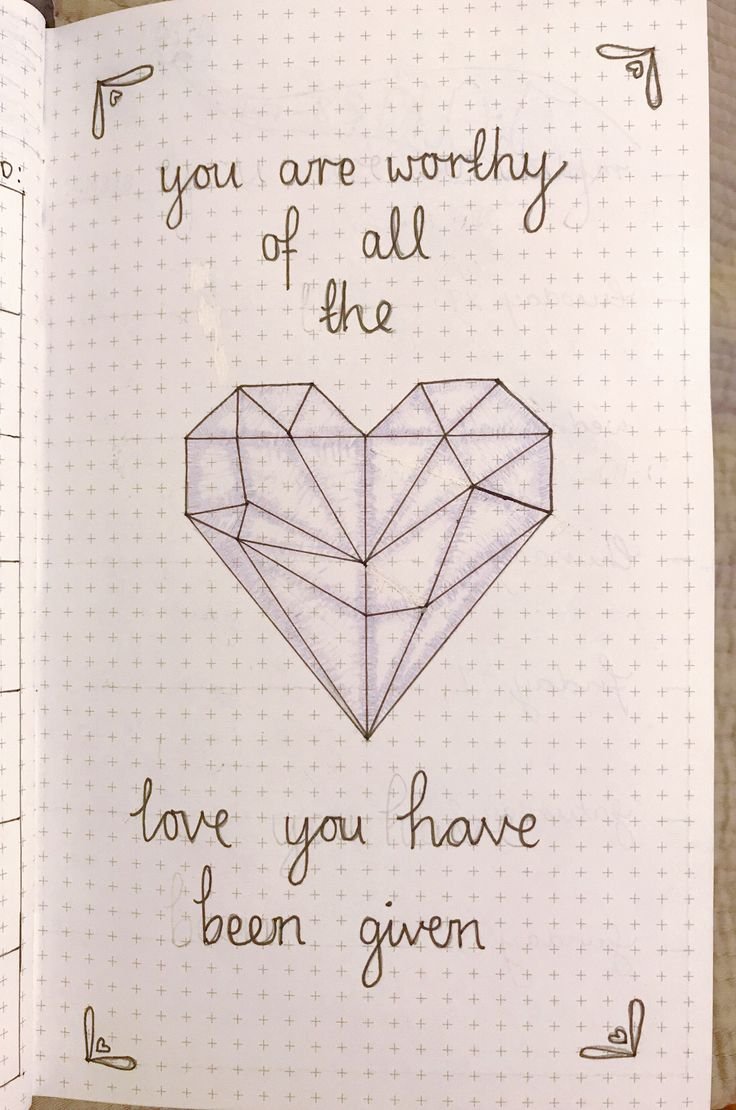 you are worthy
of all
the
love you have
been given